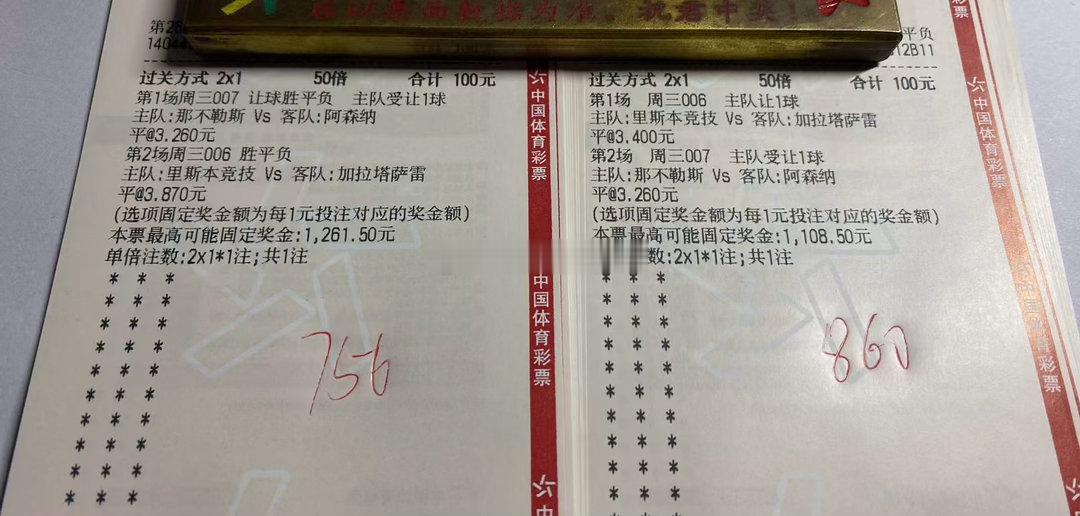 第28
14044
过关方式 2x1 50倍 合计 100元
第1场周三007 让球胜平负 主队受让1球
主队:那不勒斯 Vs 客队:阿森纳
平@3.260元
第2场周三006 胜平负
主队:里斯本竞技 Vs 客队:加拉塔萨雷
平@3.870元
(选项固定奖金额为每1元投注对应的奖金额)
本票最高可能固定奖金:1,261.50元
单倍注数:2x1*1注;共1注
756
中国体育彩票
中国体育彩票
中
平负
12B11
过关方式 2x1 50倍 合计 100元
第1场 周三006 主队让1球
主队:里斯本竞技 Vs 客队:加拉塔萨雷
平@3.400元
第2场 周三007 主队受让1球
主队:那不勒斯 Vs 客队:阿森纳
平@3.260元
(选项固定奖金额为每1元投注对应的奖金额)
本票最高可能固定奖金:1,108.50元
数:2x1*1注;共1注
860
彩票
中国体育彩票
中国体育彩票